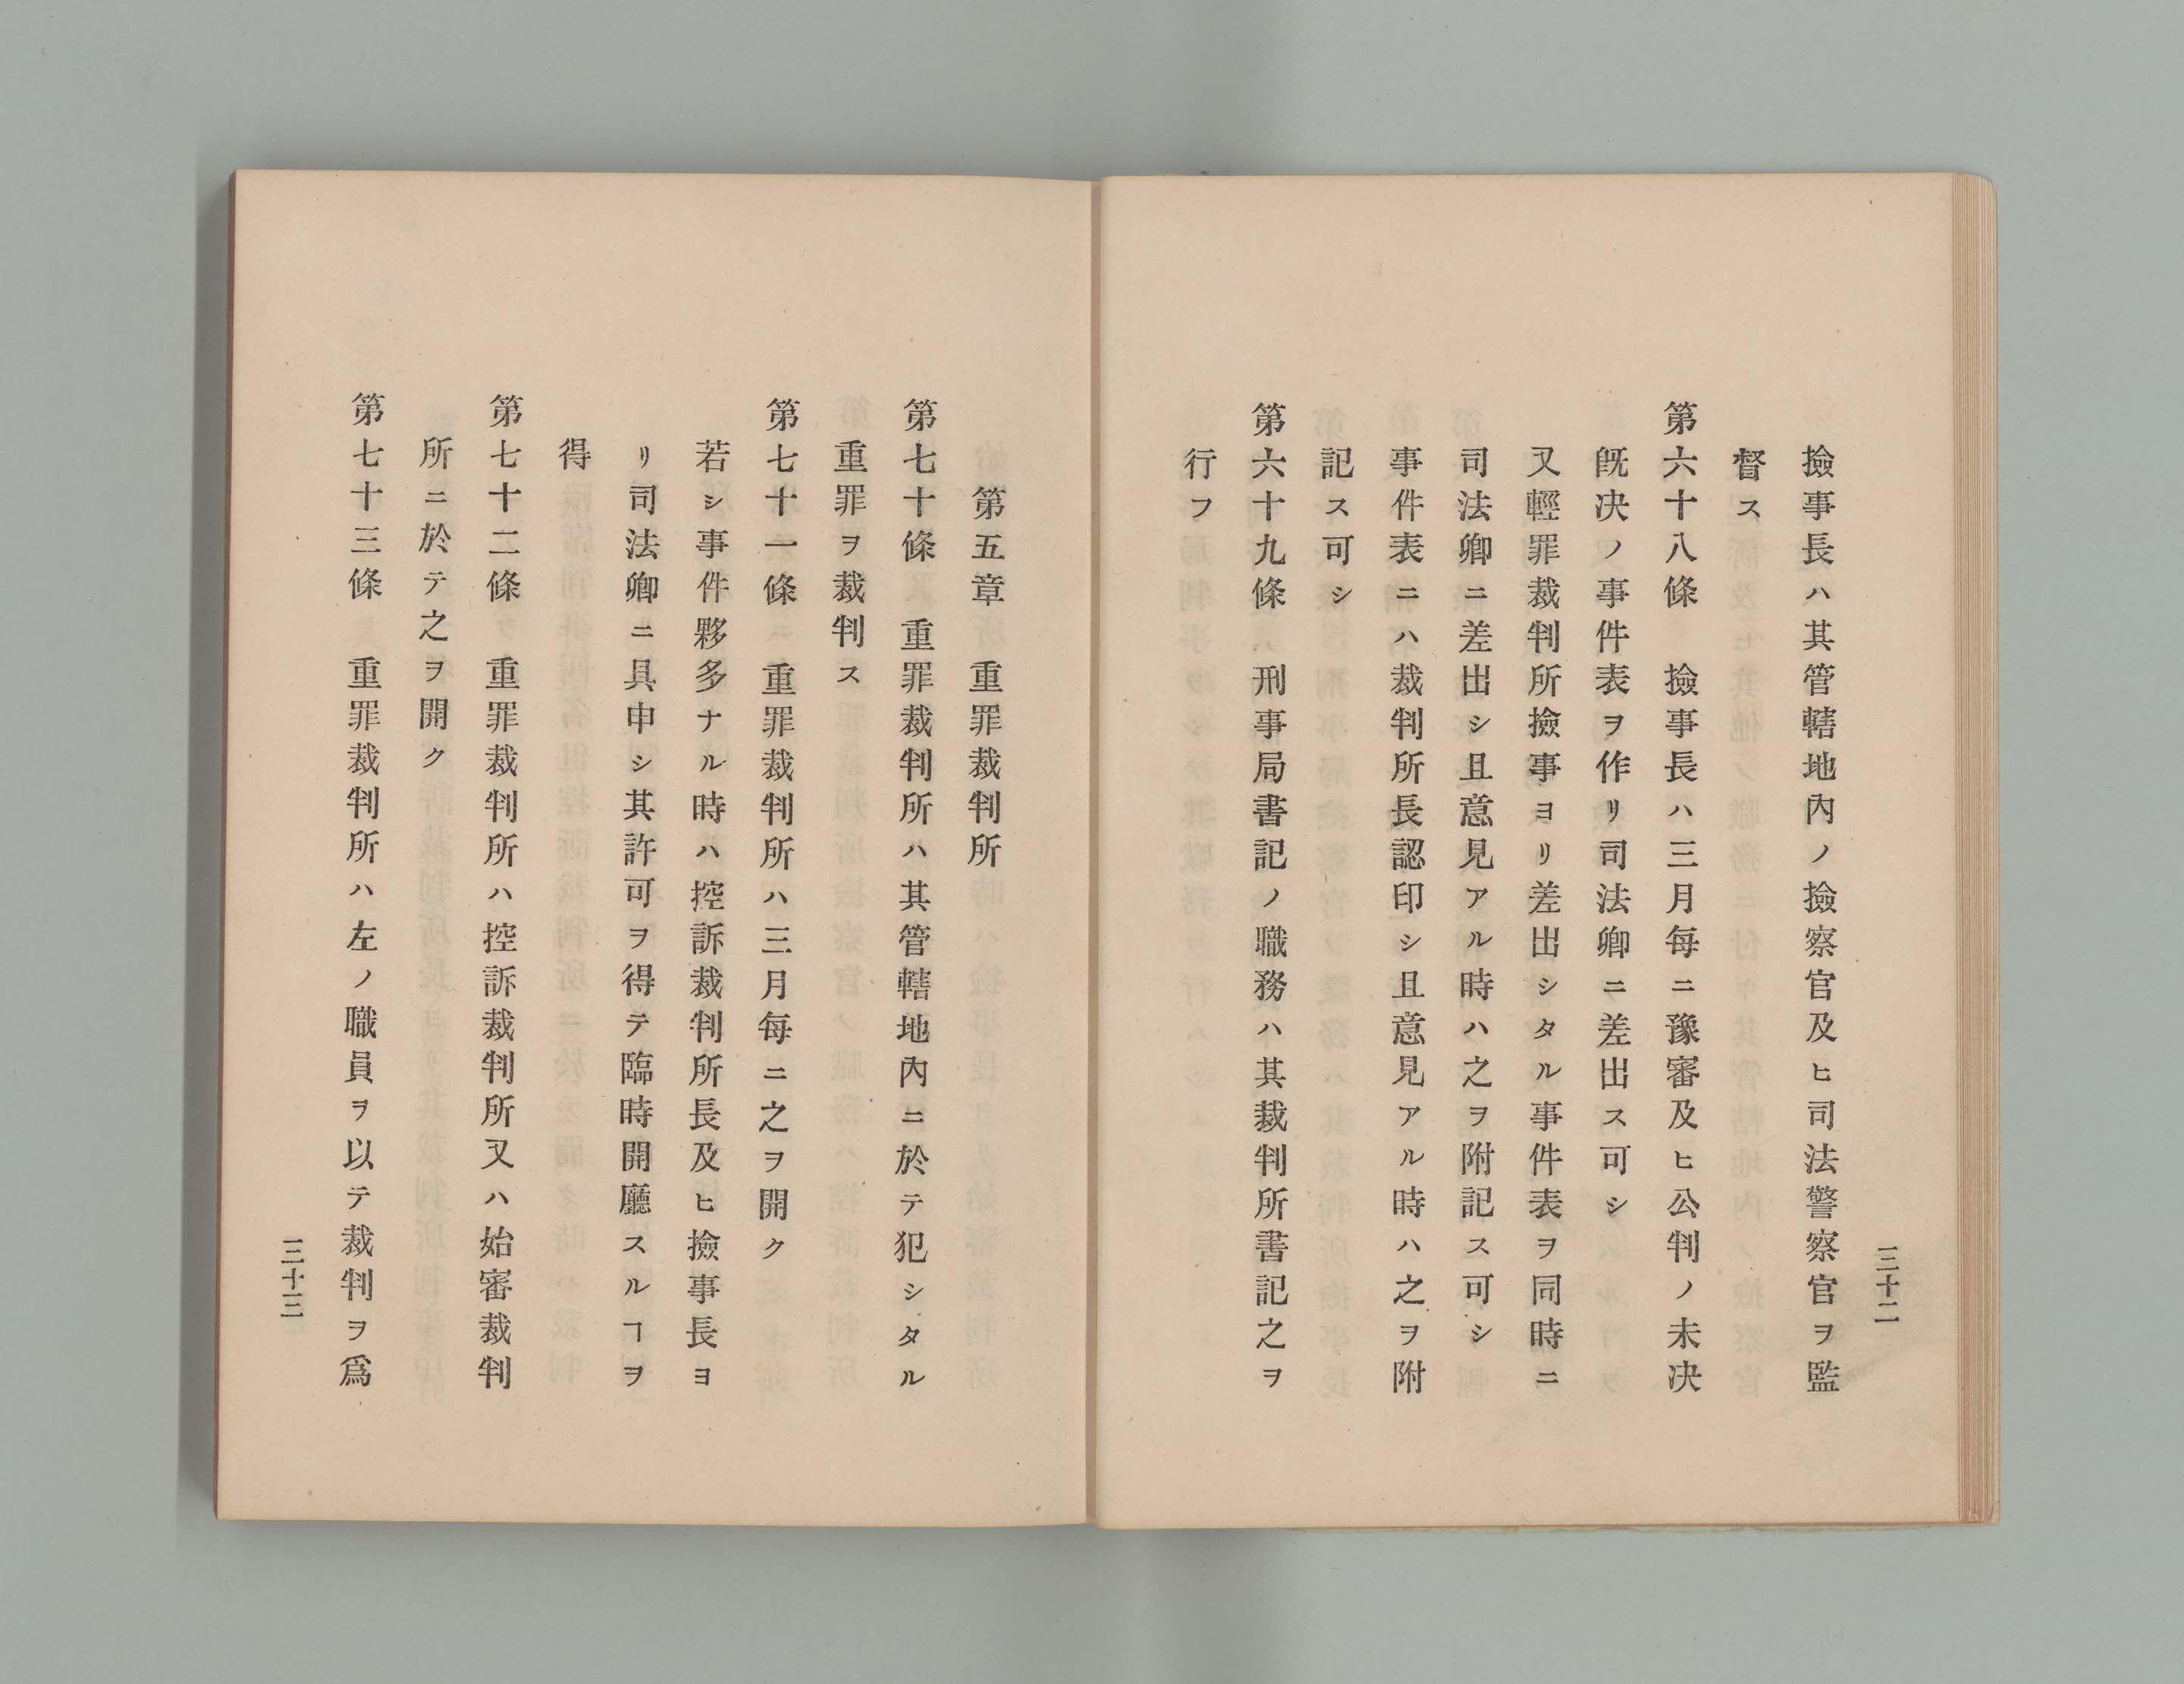 三十二
撿事長ハ其管轄地內ノ撿察官及ヒ司法警察官ヲ監
督ス
第六十八條　撿事長ハ三月每ニ豫審及ヒ公判ノ未决
旣决ノ事件表ヲ作リ司法卿ニ差出ス可シ
又輕罪裁判所撿事ヨリ差出シタル事件表ヲ同時ニ
司法卿ニ差出シ且意見アル時ハ之ヲ附記ス可シ
事件表ニハ裁判所長認印シ且意見アル時ハ之ヲ附
記ス可シ
第六十九條　刑事局書記ノ職務ハ其裁判所書記之ヲ
行フ
第五章　重罪裁判所
第七十條　重罪裁判所ハ其管轄地內ニ於テ犯シタル
重罪ヲ裁判ス
第七十一條　重罪裁判所ハ三月每ニ之ヲ開ク
若シ事件夥多ナル時ハ控訴裁判所長及ヒ撿事長ヨ
リ司法卿ニ具申シ其許可ヲ得テ臨時開廳スルヿヲ
得
第七十二條　重罪裁判所ハ控訴裁判所又ハ始審裁判
所ニ於テ之ヲ開ク
第七十三條　重罪裁判所ハ左ノ職員ヲ以テ裁判ヲ爲
三十三